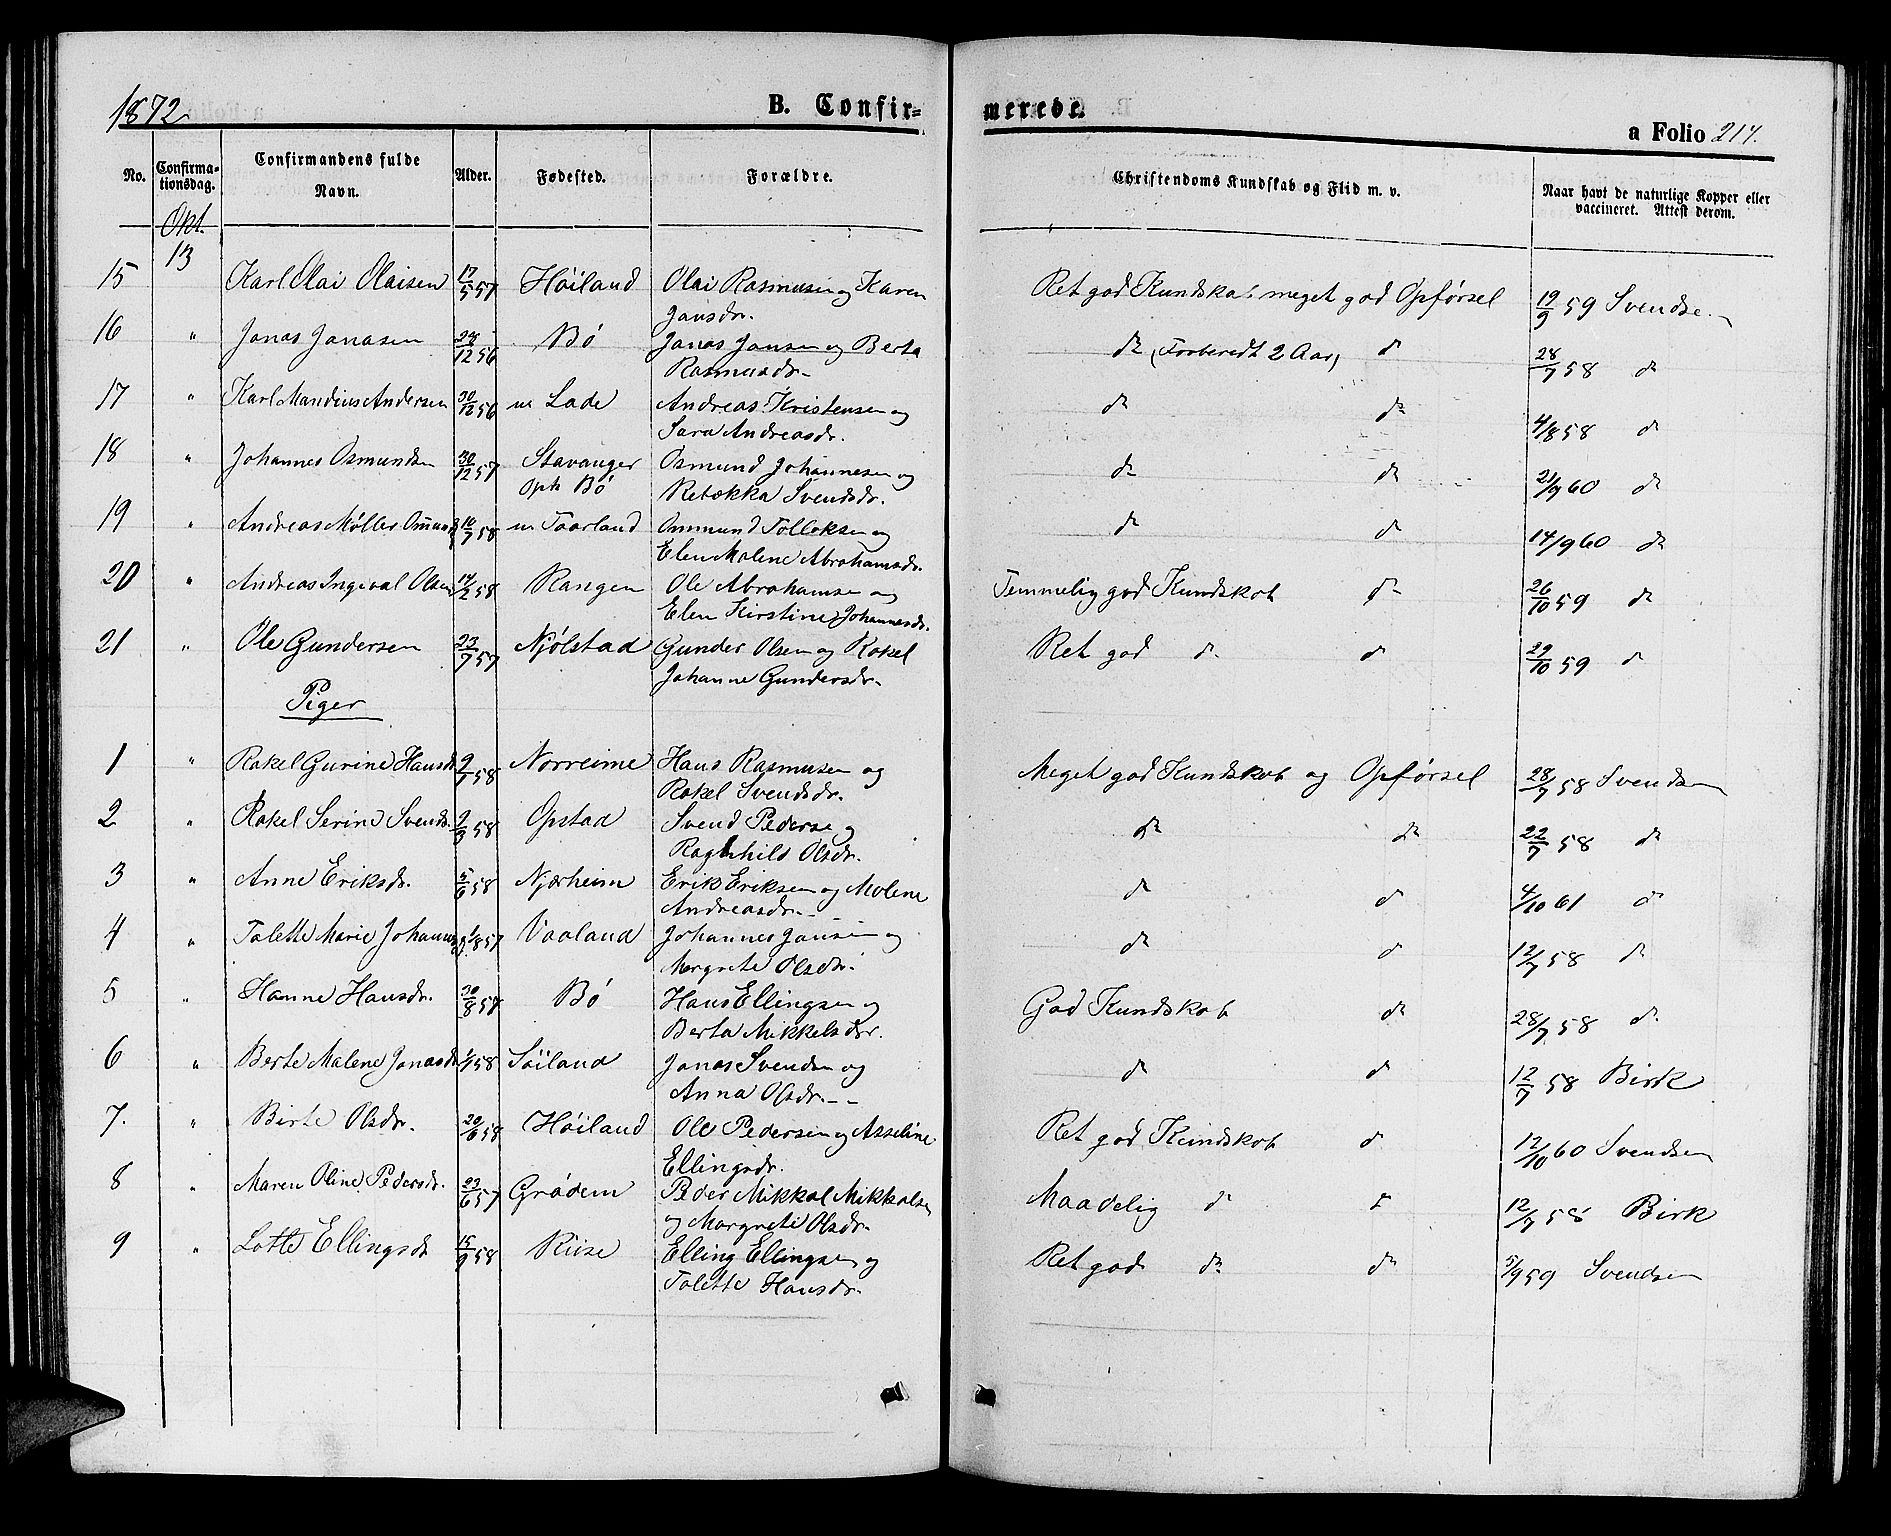 1872
B. Confir-
merede.
a Folio 214.
No. Confirma-tionsdag. Confirmandens fulde Navn. Alder. Fødested. Forældre. Christendoms Kundskab og Flid m. v. Naar havt de naturlige Kopper eller vaccineret. Attest derom.
Okt.
13
15 Karl Olai Olaisen 17/5 57 Høiland Olai Rasmusen og Karen Ret god Kundskab meget god Opførsel 19/9 59 Svendsen
Jansdr.
16 " Jonas Jonasen /12 56 Bø Jonas Jonsen og Berta do (Forberedt 2 Aar) do 28/7 58 do
Rasmusdr.
17 " Karl Mandius Andersen 30/12 56 n. Lade Andreas Kristensen og do do 4/8 58 do
Sara Andreasdr.
18 " Johannes Osmundsen 30/12 57 Stavanger Osmund Johannesen og do do 21/9 60 do
Opk Bø Rebekka Svendsdr.
19 " Andreas Møller Omunds 10/7 58 n. Taarland Ommund Tolleksen og do do 14/9 60 do
Elen Malene Abrahamsdr.
20 " Andreas Ingeval Olsen 14/2 58 Rangen Ole Abrahamsen og Temmelig god Kundskab do 26/10 59 do
Elen Kirstine Johannesdr.
21 " Ole Gundersen 23/7 57 Njølstad Gunder Olsen og Rakel Ret god do do 29/10 59 do
Johanne Gundersdr.
Piger
1 " Rakel Gurine Hansdr 9/7 58 Norreime Hans Rasmusen og Meget god Kundskab og Opførsel 28/7 58 Svendsen
Rakel Svendsdr.
2 " Rakel Serine Svends. 9/3 58 Opstad Svend Pedersen og do do 22/7 58 do
Ragnhild Olsdr.
3 " Anne Eriksdr. 5/6 58 Njærheim Erik Eriksen og Malene do do 4/10 61 do
Andreasdr.
4 " Tolette Marie Johanns dr. 1/8 57 Vaaland Johannes Jansen og do do 12/7 58 do
Margrete Olsdr.
5 " Hanne Hansdr. 30/8 57 Bø Hans Ellingsen og God Kundskab do 28/7 58 do
Berta Mikkelsdr.
6 " Berte Malene Jonasdr 1/1 58 Søiland Jonas Svendsen og do do 12/7 58 Birk
Anna Olsdr.
7. " Birte Olsdr. 20/6 58 Høiland Ole Pedersen og Asseline Ret god Kundskab do 12/10 60 Svendsen
Ellingsdr.
8 " Maren Oline Pedersdr. 23/6 57 Grødem Peder Mikkal Mikkalsen Maadelig do do 12/7 58 Birk
og Margrete Olsdr.
9 " Lotte Ellingsdr 15/9 58 Riise Elling Ellingsen og Ret god do do 5/9 59 Svendsen
Tolette Hansdr.